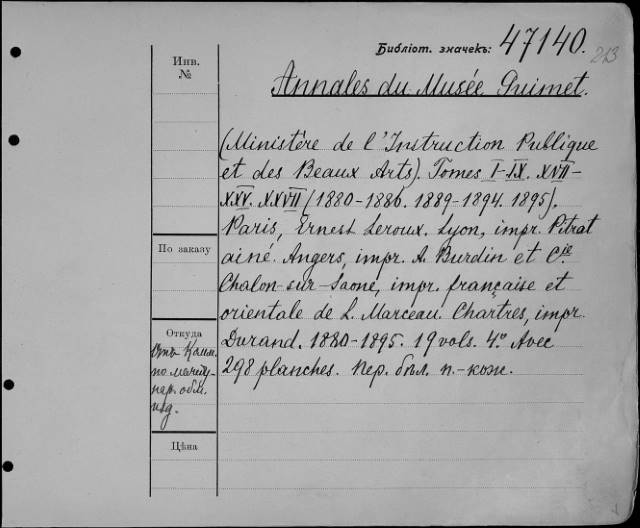 Библіот. значекъ: 47140.
213
Инв.
№
Annales du Musée Guimet.
(Ministère de l'Instruction Publique
et des Beaux Arts). Tomes I-IX. XVII-
XXV. XXVII (1880-1886. 1889-1894. 1895).
Paris, Ernest Leroux. Lyon, impr. Pitrat
ainé. Angers, impr. A. Burdin et Cie.
Chalon-sur-Saone, impr. française et
orientale de L. Marceau. Chartres, impr.
Durand. 1880-1895. 19 vols. 4º. Avec
298 planches. Пер. бѣл. п.-кож.
По заказу
Откуда
Отъ Комм.
по между-
нар. обм.
изд.
Цѣна